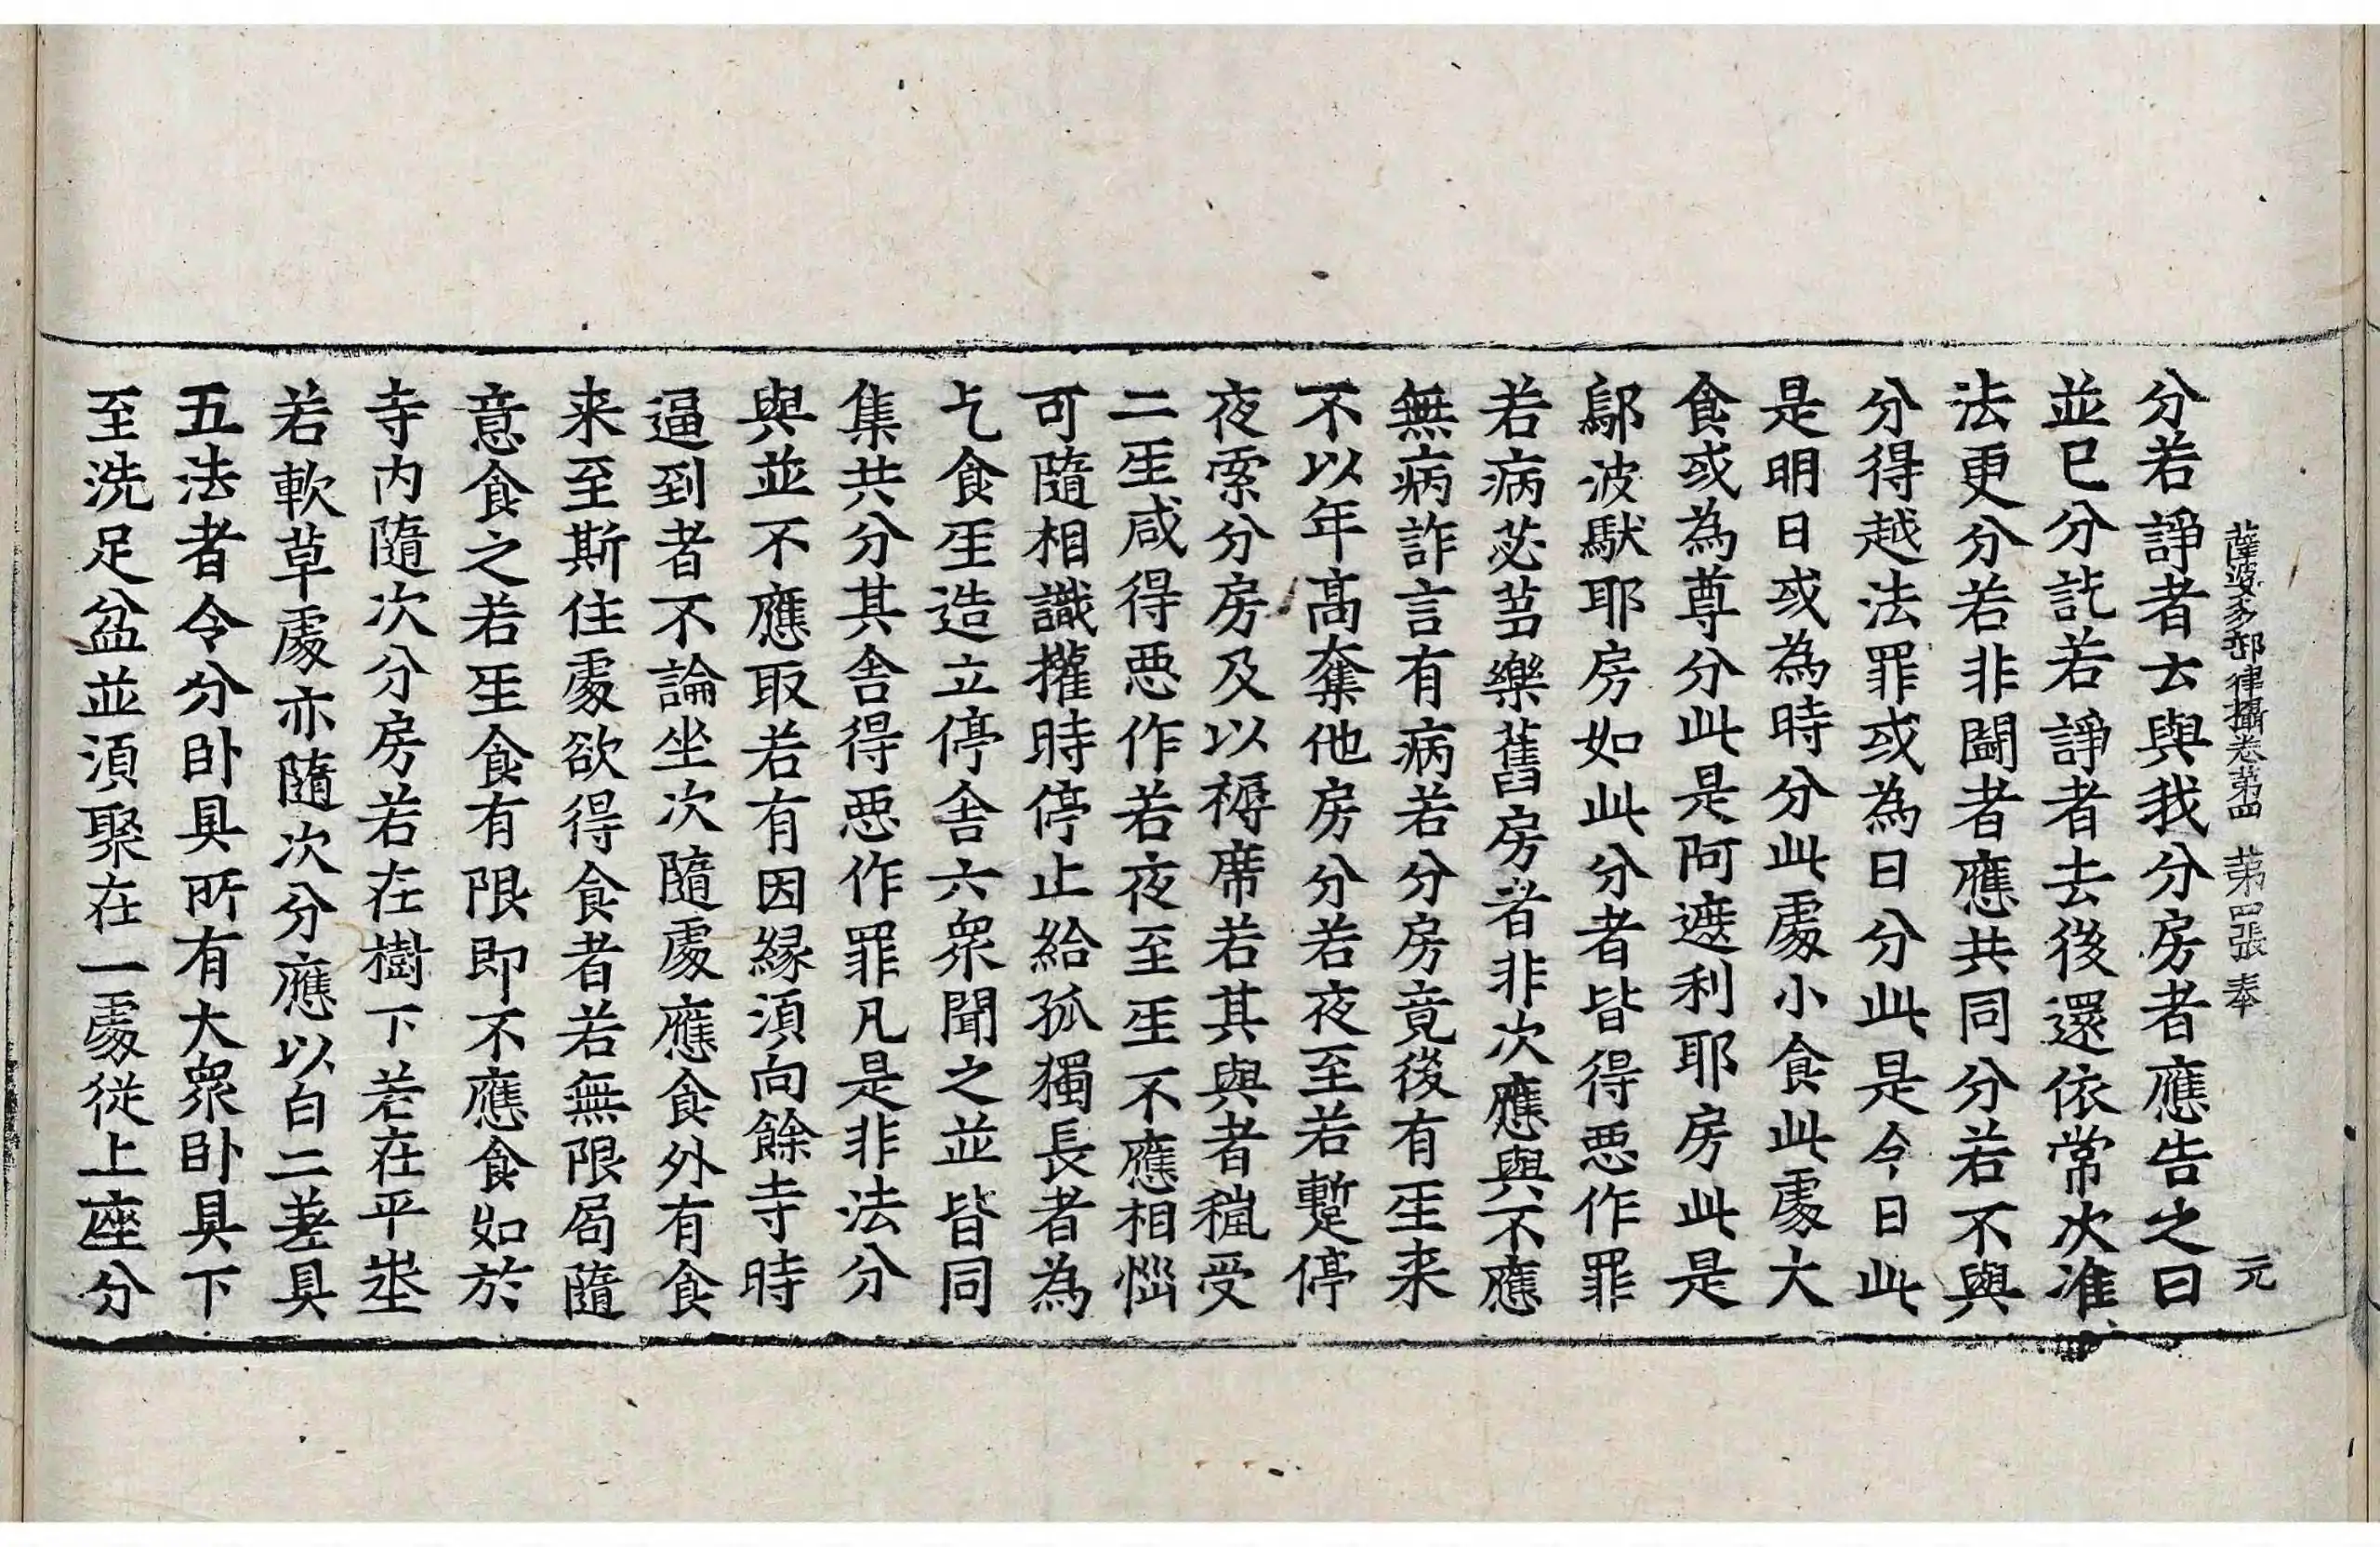 薩婆多部律攝卷第四　第四張　奉　元
分若諍者云與我分房者應告之曰
並已分訖若諍者去後還依常次准
法更分若非鬪者應共同分若不與
分得越法罪或為日分此是今日此
是明日或為時分此處小食此處大
食或為尊分此是阿遮利耶房此是
鄔波馱耶房如此分者皆得惡作罪
若病苾芻樂舊房者非次應與不應
無病詐言有病若分房竟後有客来
不以年高奪他房分若夜至若蹔停
夜索分房及以褥席若其與者䆉受
二俱咸得惡作若夜至客不應相惱
可隨相識攉時停止給孤獨長者為
乞食人造立停舍六衆聞之並皆同
集共分其舍得惡作罪凡是非法分
與並不應取若有因緣湏向餘寺時
逼到者不論坐次隨處應食外有食
来至斯住處欲得食者若無限局隨
意食之若主食有限即不應食如於
寺内隨次分房若在樹下若在平坐
若軟草處亦隨次分應以白二差具
五法者令分卧具所有大衆卧具下
至洗足盆並湏聚在一處從上座分